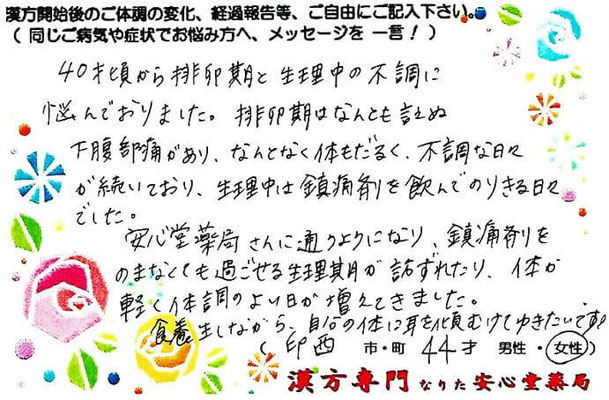 漢方開始後のご体調の変化、経過報告等、ご自由にご記入下さい。
(同じご病気や症状でお悩み方へ、メッセージを 一言!)
40才頃から排卵期と生理中の不調に
悩んでおりました。排卵期はなんとも言えぬ
下腹部痛があり、なんとなく体もだるく、不調な日々
が続いており、生理中は鎮痛剤を飲んでのりきる日々
でした。
安心堂薬局さんに通うようになり、鎮痛剤を
のまなくても過ごせる生理期が訪ずれたり、体が
軽く体調のよい日が増えてきました。
食養生しながら、自分の体に耳を傾むけてゆきたいです。
(印西 市・町 44才 男性・女性)
漢方専門 なりた安心堂薬局